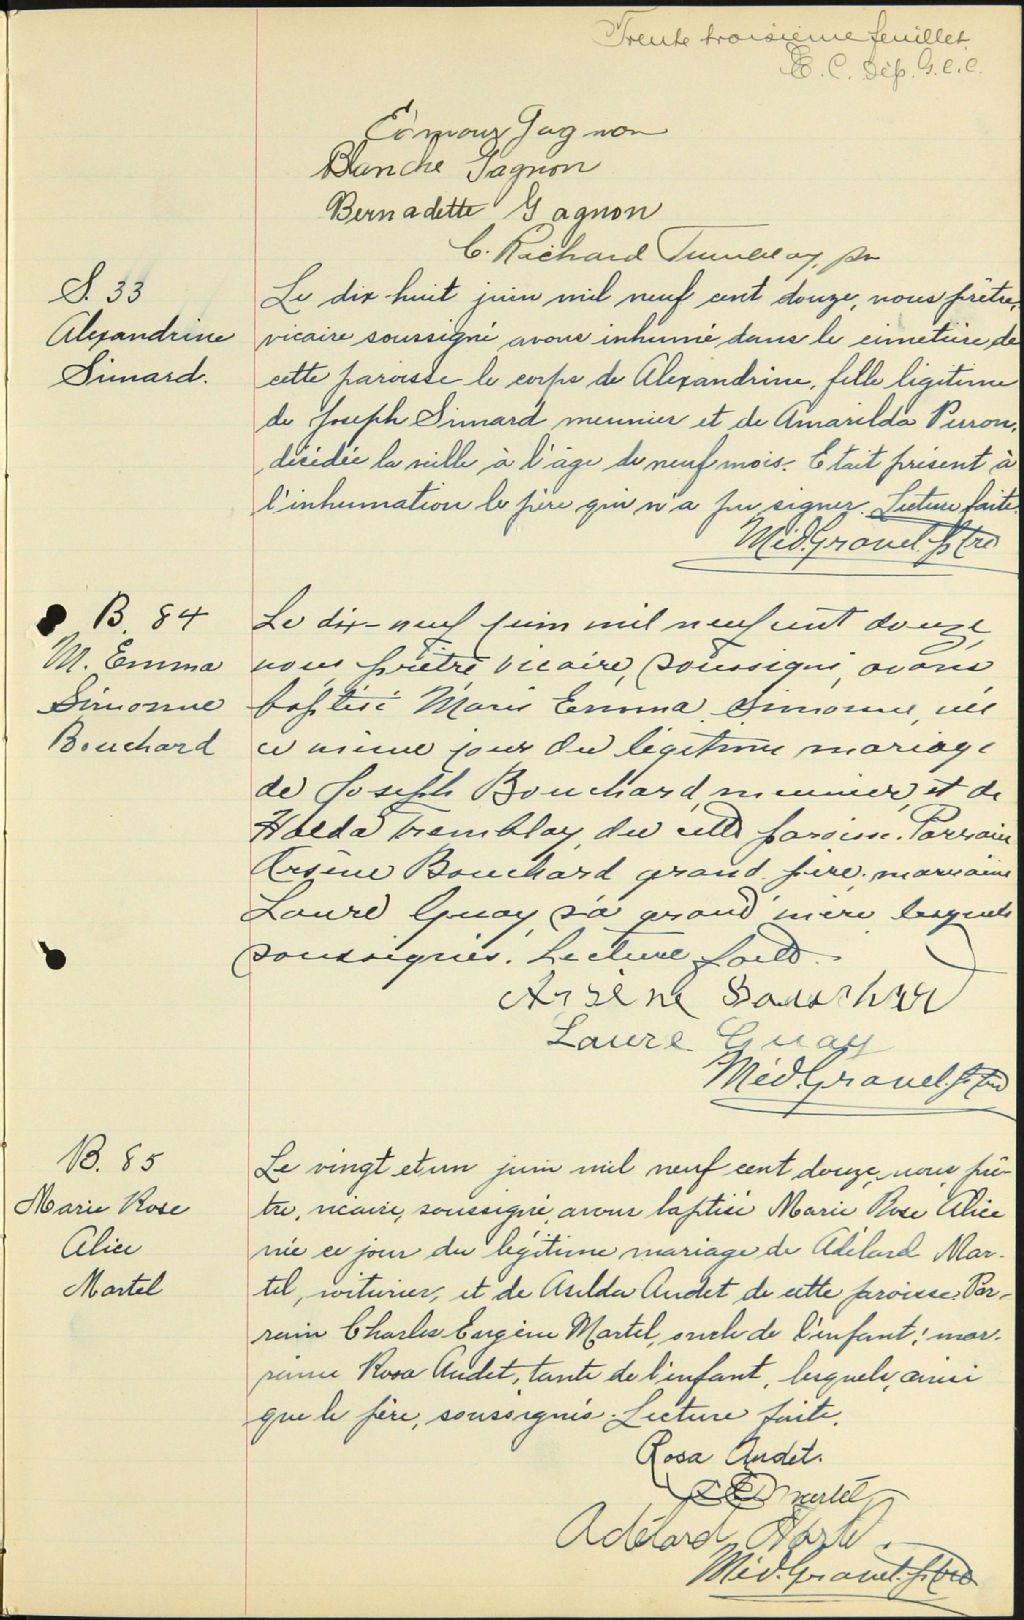 Trente troisième feuillet.
E. C. Dép. G.C.C.
Edmour Gagnon
Blanche Gagnon
Bernadette Gagnon
C. Richard Tremblay, ptr
S. 33
Alexandrine
Simard.
Le dix huit juin mil neuf cent douze, nous prêtre,
vicaire soussigné, avons inhumé dans le cimetière de
cette paroisse le corps de Alexandrine, fille légitime
de Joseph Simard meunier et de Amarilda Perron,
décédée la veille à l'âge de neuf mois. Etait présent à
l'inhumation le père qui n'a pu signer. Lecture faite.
Méd. Gravel. ptre
B. 84
M. Emma
Simonne
Bouchard
Le dix-neuf juin mil neuf cent douze,
nous prêtre vicaire, soussigné, avons
baptisé Marie Emma Simonne, née
ce même jour du légitime mariage
de Joseph Bouchard, meunier, et de
Tremblay, de cette paroisse. Parrain
Arsène Bouchard grand père; marraine
Laure Guay, sa grand'mère lesquels
soussignés. Lecture faite.
Arsène Bouchard
Laure Guay
Méd. Gravel. ptre
B. 85
Marie Rose
Alice
Martel
Le vingt et un juin mil neuf cent douze, nous, prê-
tre, vicaire, soussigné, avons baptisé Marie Rose Alice
née ce jour du légitime mariage de Adélard Mar-
tel, voiturier, et de Asilda Audet de cette paroisse. Par-
rain Charles Eugène Martel, oncle de l'enfant; mar-
raine Rosa Audet, tante de l'enfant, lesquels, ainsi
que le père, soussignés. Lecture faite.
Rosa Audet.
C E Martel
Adélard Martel.
Méd. Gravel. ptre